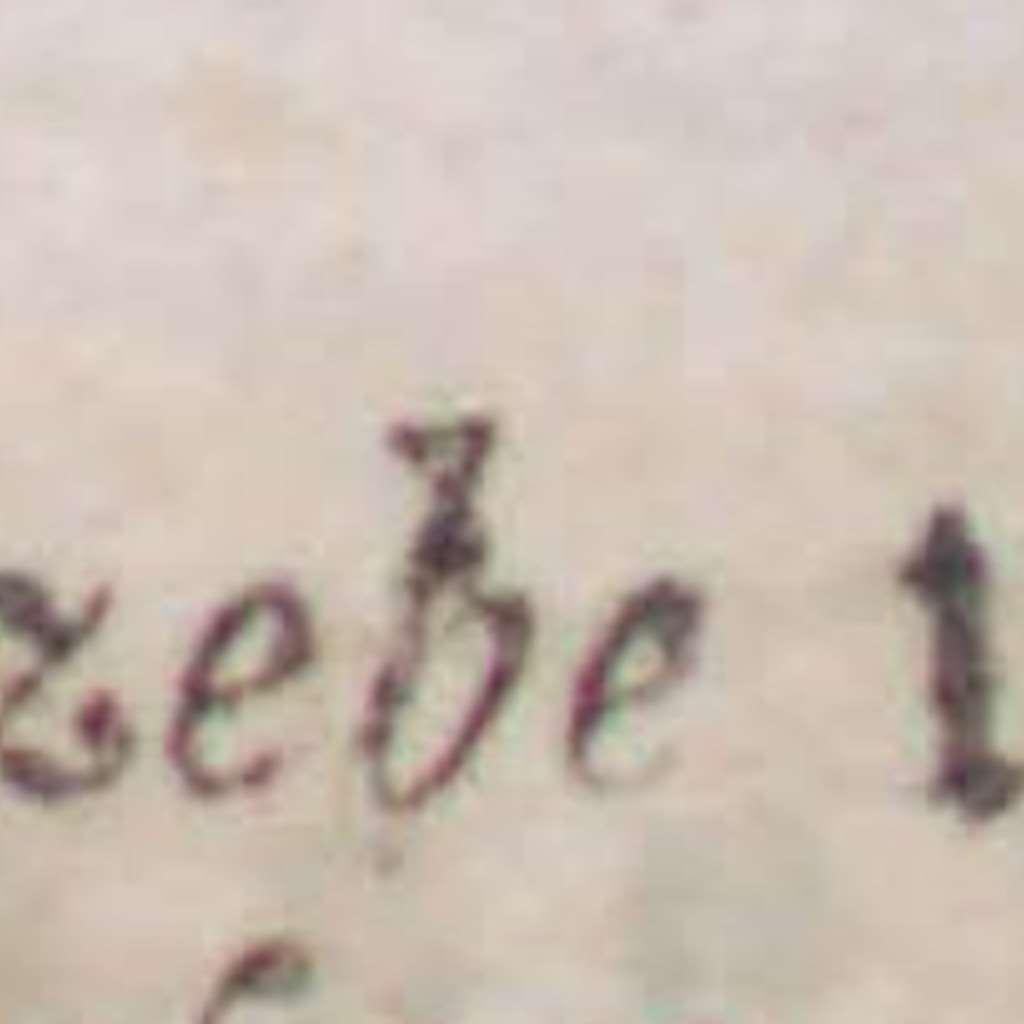 zebe l